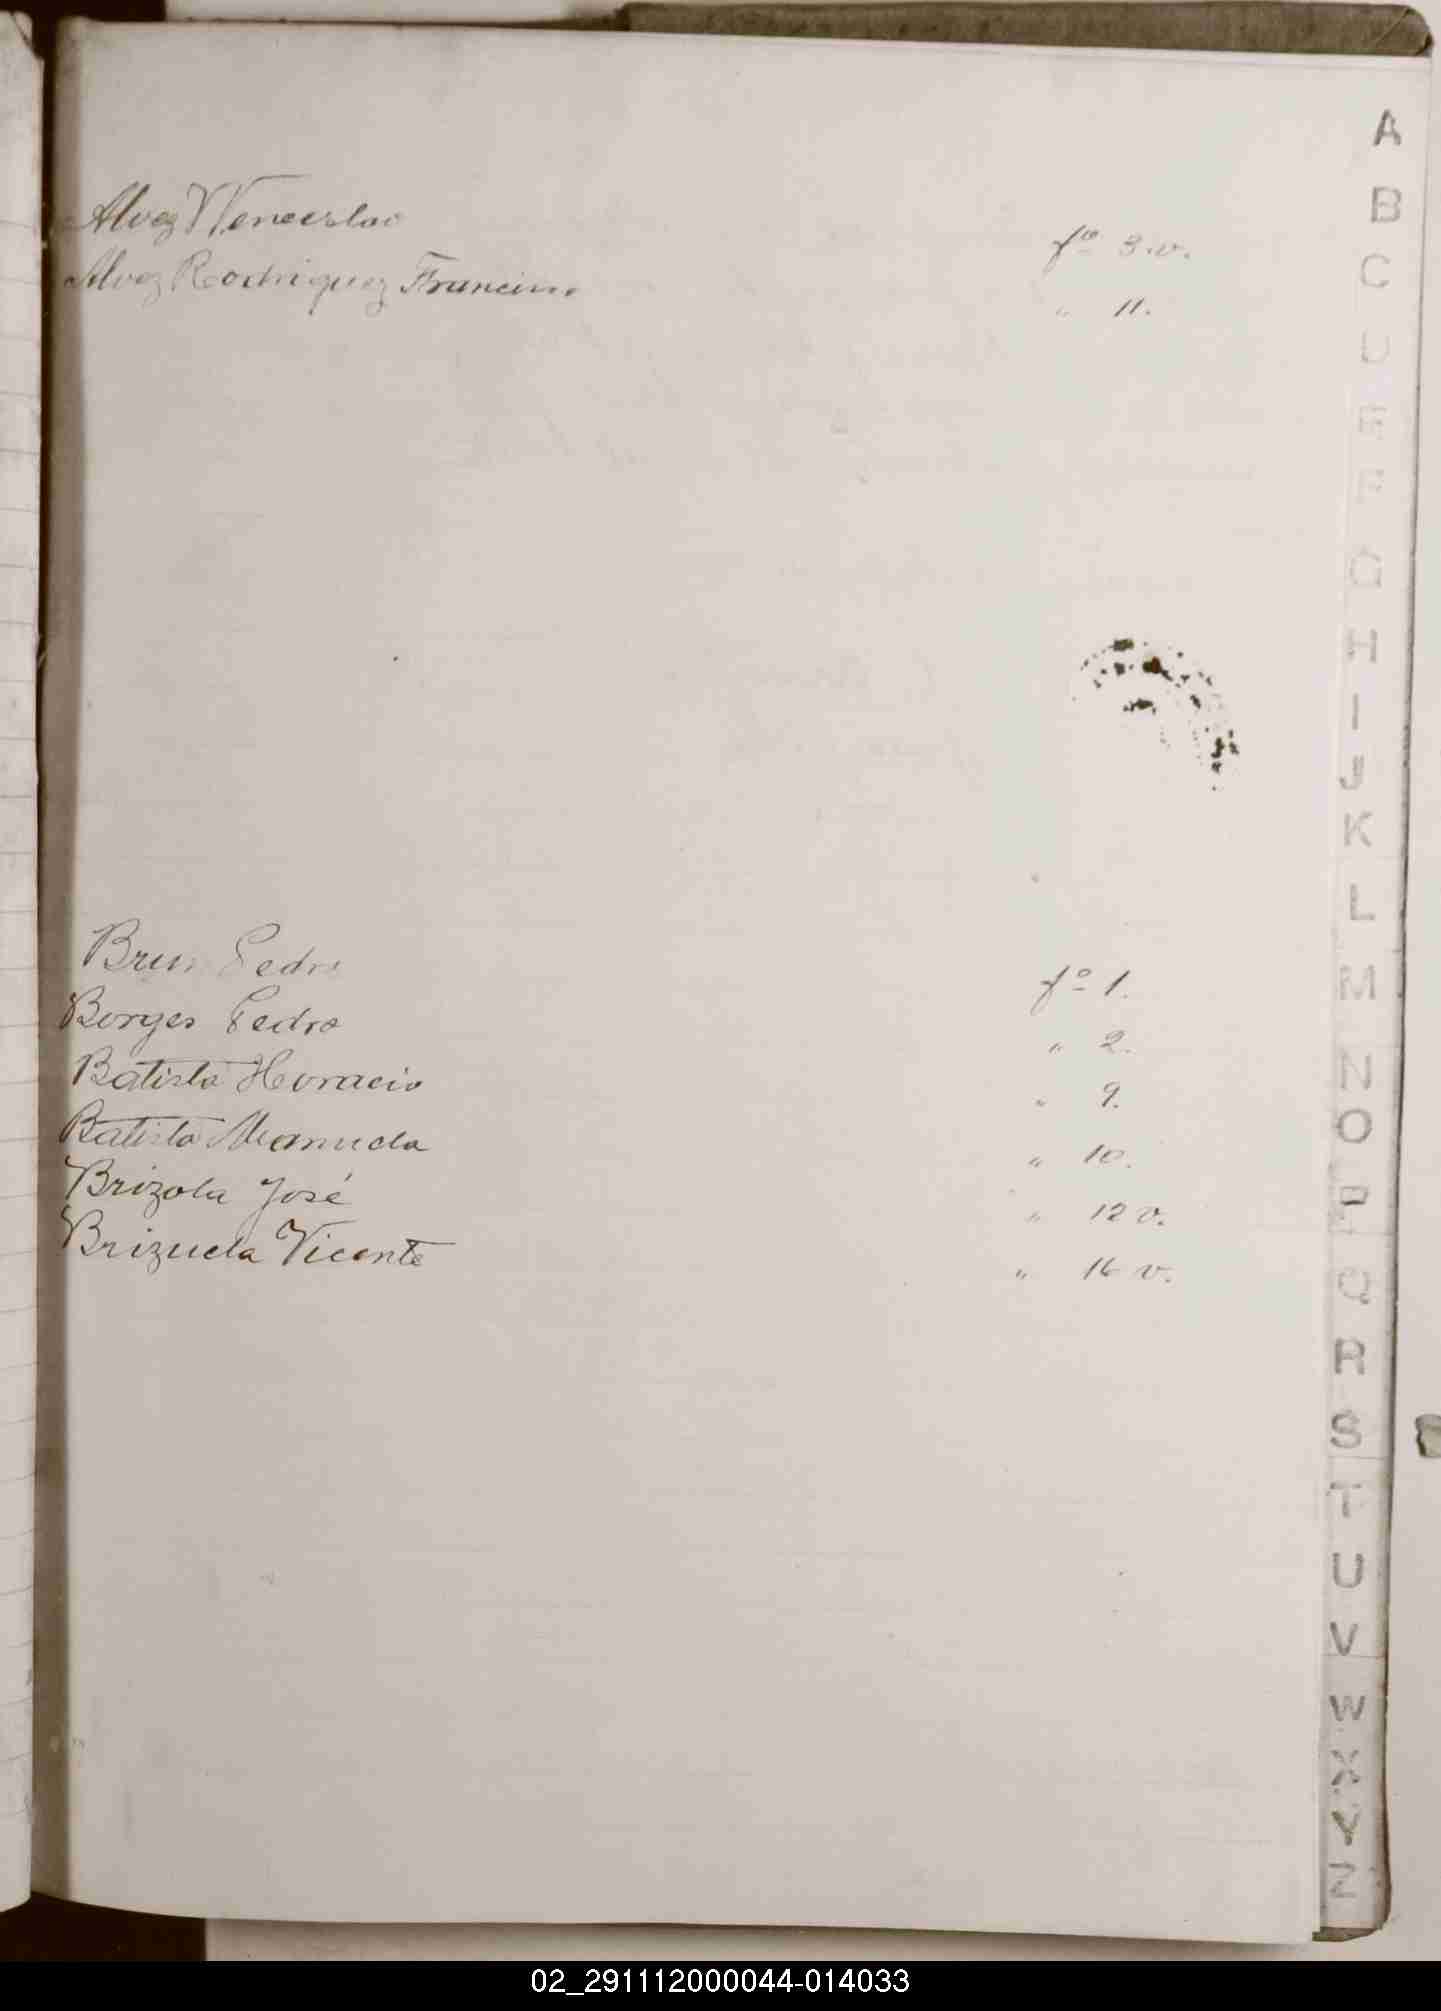 Alvez Wenceslao fº 3.v.
Alvez Rodriguez Francisco " 11.
Brun Pedro fº 1.
Borges Pedro " 2.
Batista Horacio " 9.
Batista Manuela " 10.
Brizola José " 12 v.
Brizuela Vicente " 16 v.
A
B
C
D
E
F
G
H
I
J
K
L
M
N
O
P
Q
R
S
T
U
V
W
X
Y
Z
02_291112000044-014033